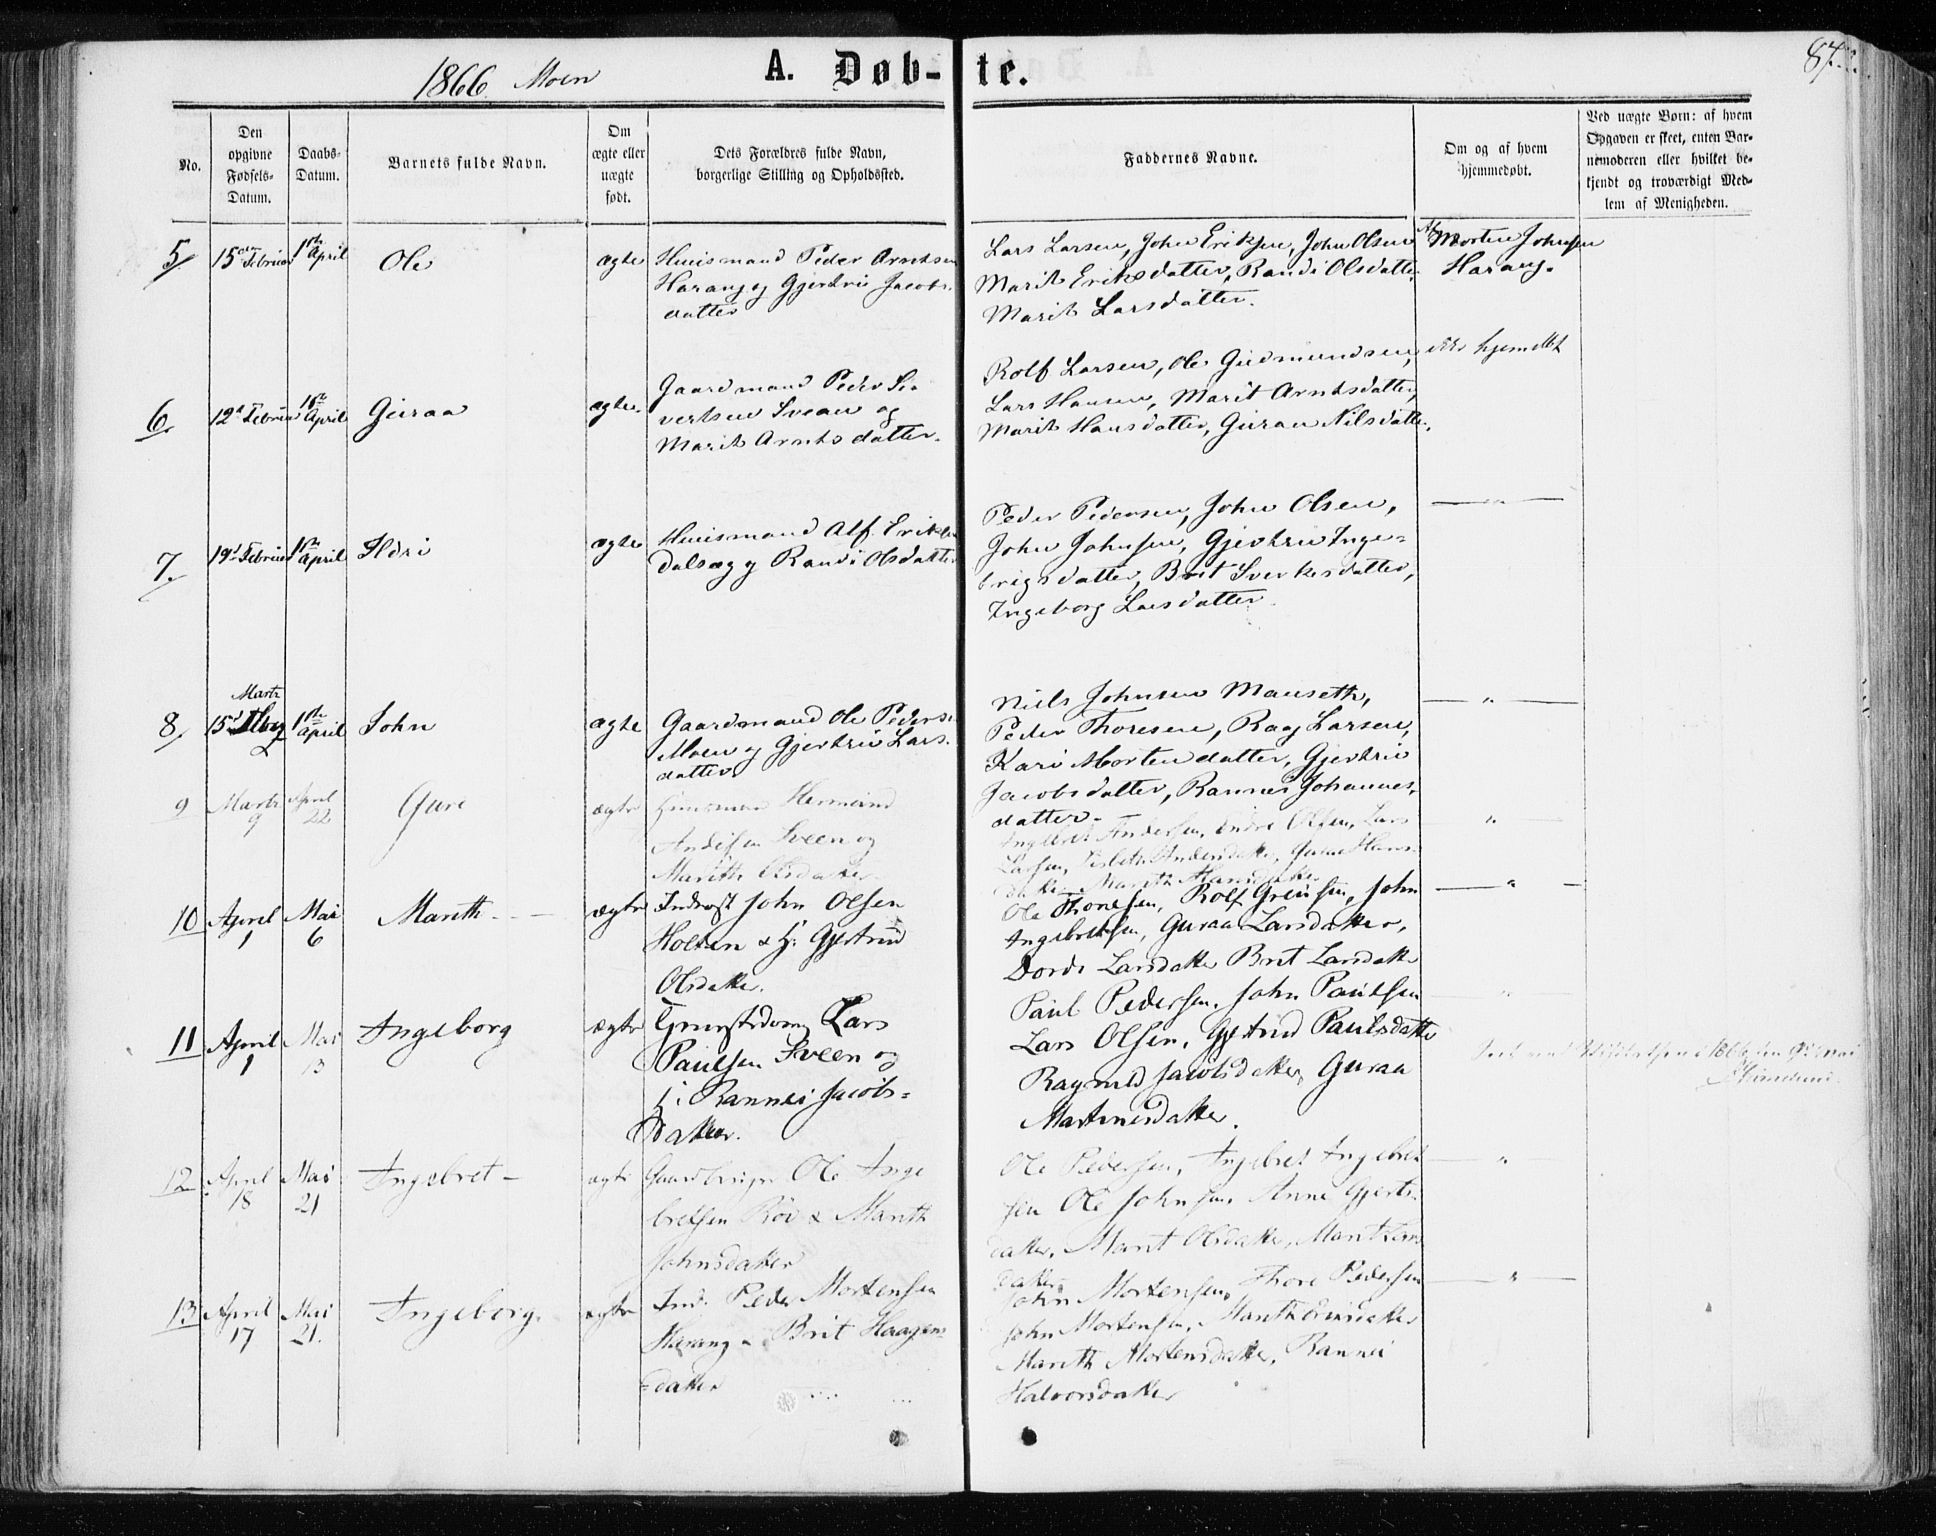 1866. Moen
A. Døb-te.
87
No.
Den
opgivne
Fødsels-
Datum.
Daabs-
Datum.
Barnets fulde Navn.
Om
ægte eller
uægte
født.
Dets Forældres fulde Navn,
borgerlige Stilling og Opholdssted.
Faddernes Navne.
Om og af hvem
hjemmedøbt.
Ved uægte Børn: af hvem
Opgaven er skeet, enten Bar-
nemoderen eller hvilket be-
kjendt og troværdigt Med-
lem af Menigheden.
5 15de Februar 1ste April Ole ægte
Huusmand Peder Arntsen
Harang og Gjertrui Jacobs-
datter
Lars Larsen, John Eriksen, John Olsen
Marit Eriksdatter, Randi Olsdatter
Marit Larsdatter.
Af Morten Johnsen
Harang.
6. 12te Februar 1ste April Guraa ægte.
Gaardmand Peder Si-
vertsen Sveen og
Marit Arntsdatter.
Rolf Larsen, Ole Gudmundsen,
Lars Hansen, Marit Arntsdatter,
Marit Hansdatter, Guraa Nilsdatter.
ikke hjemdbt
7. 19de Februar 1ste April Ildri ægte
Huusmand Alf Eriksen
Dalsæg og Randi Olsdatter
Peder Pedersen, John Olsen,
John Johnsen, Gjertrui Inge-
brigsdatter, Brit Sverkesdatter,
Ingeborg Larsdatter.
— " —
8. 15de Marts 1ste April John ægte
Gaardmand Ole Peders.
Moen og Gjertrui Lars-
datter
Niels Johnsen Mauseth,
Peder Thoresen, Rag Larsen,
Kari Mortensdatter, Gjertrui
Jacobsdatter, Rannei Johannes-
datter.
— " —
9 Marts 9 April 22 Gure ægte
Huusman Hermand
Andersen Sveen og
Marith Olsdatter
Ingebret Andersen, Endre Olsen, Lars
Larsen, Lisbeth Andersdatter, Guraa Hans-
datter, Marith Hansdatter
— " —
10 April 1 Mai 6 Marith - — ægte
Inderst John Olsen
Holten & H: Gjertrud
Olsdatter.
Ole Thoresen, Rolf Greisen, John
Ingebretsen, Guraa Larsdatter,
Dordi Larsdatter Brit Larsdatter
— " —
11 April 1 Mai 13 Ingeborg ægte
Lars
Paulsen Sveen og
H: Rannei Jacobs=
datter.
Paul Pedersen, John Paulsen
Lars Olsen, Gjertrud Paulsdatter
Ragnild Jacobsdatter, Guraa
Martinusdatter.
— " —
1866
12 April 18 Mai 21 Ingebret - ægte
Gaardbruger Ole Inge
bretsen Røv & Marith
Johnsdatter
Ole Pedersen, Ingebret Ingebret
sen Ole Johnsen, Anne Gjerts-
datter, Marit Olsdatter, Marit Lars
datter
— " —
13 April 17 Mai 21. Ingeborg. ægte
Ind: Peder Mortensen
Harang - Brit Haagens
datter
John Mortensen, Thore Pedersen
John Mortensen, Marith Eriksdatter
Marith Mortensdatter, Rannei
Halvorsdatter
— " —